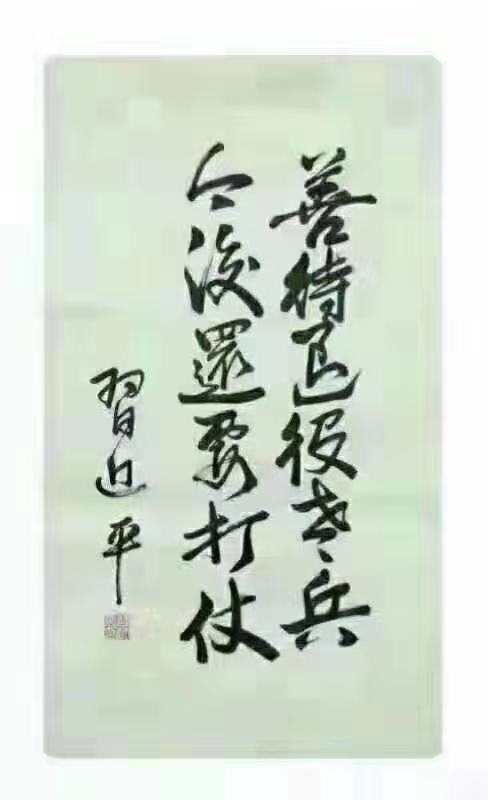 善待退役老兵
今後還要打仗
習近平